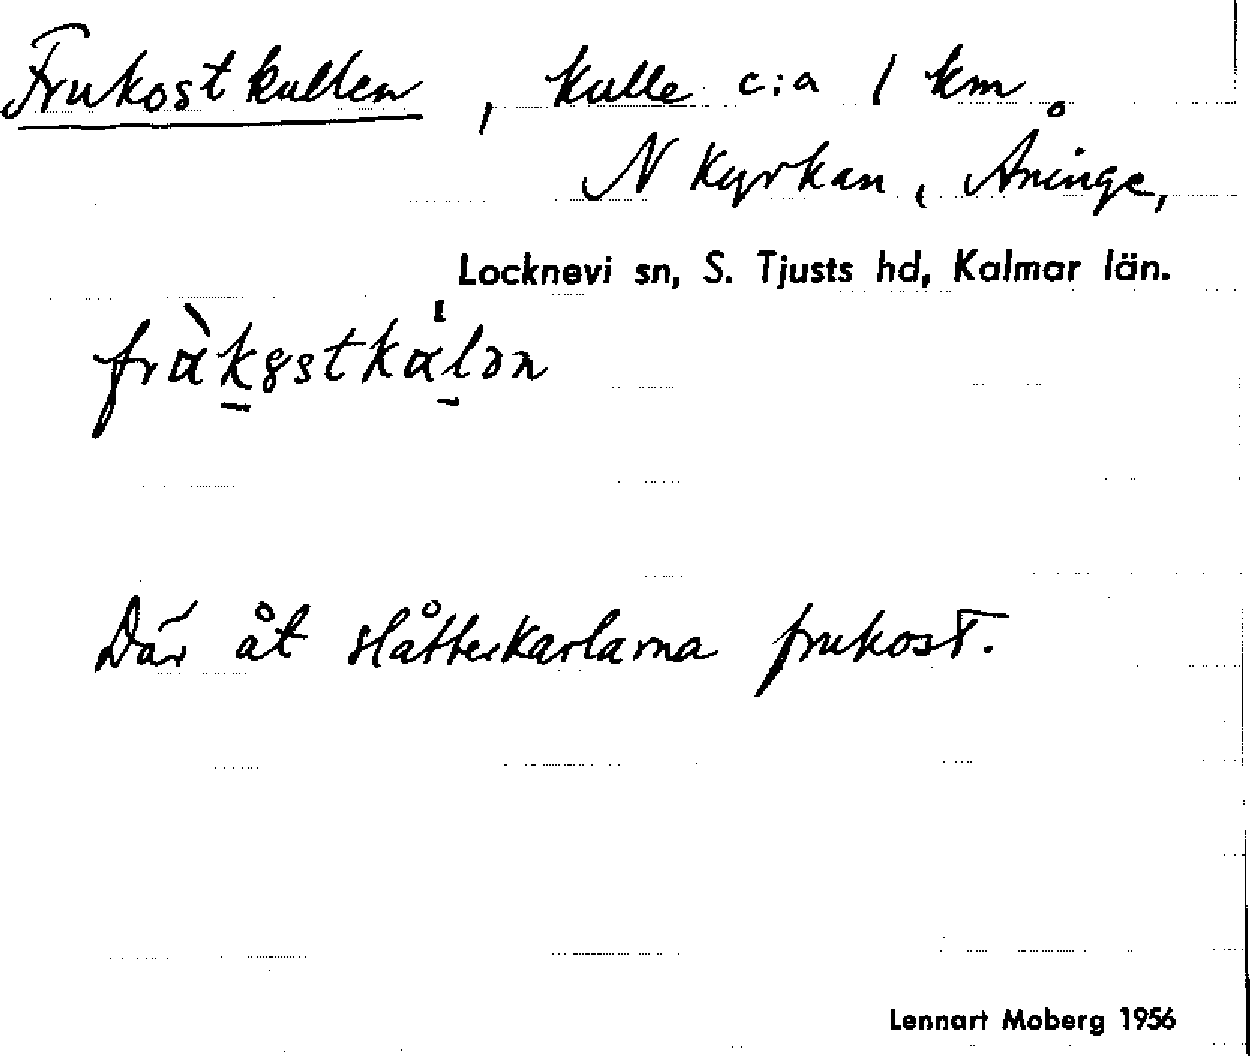 Frukostkullen, kulle c:a 1 km
N kyrkan, Åninge,
Locknevi sn, S. Tjusts hd, Kalmar län.
Där åt slåtterkarlarna frukost.
Lennart Moberg 1956